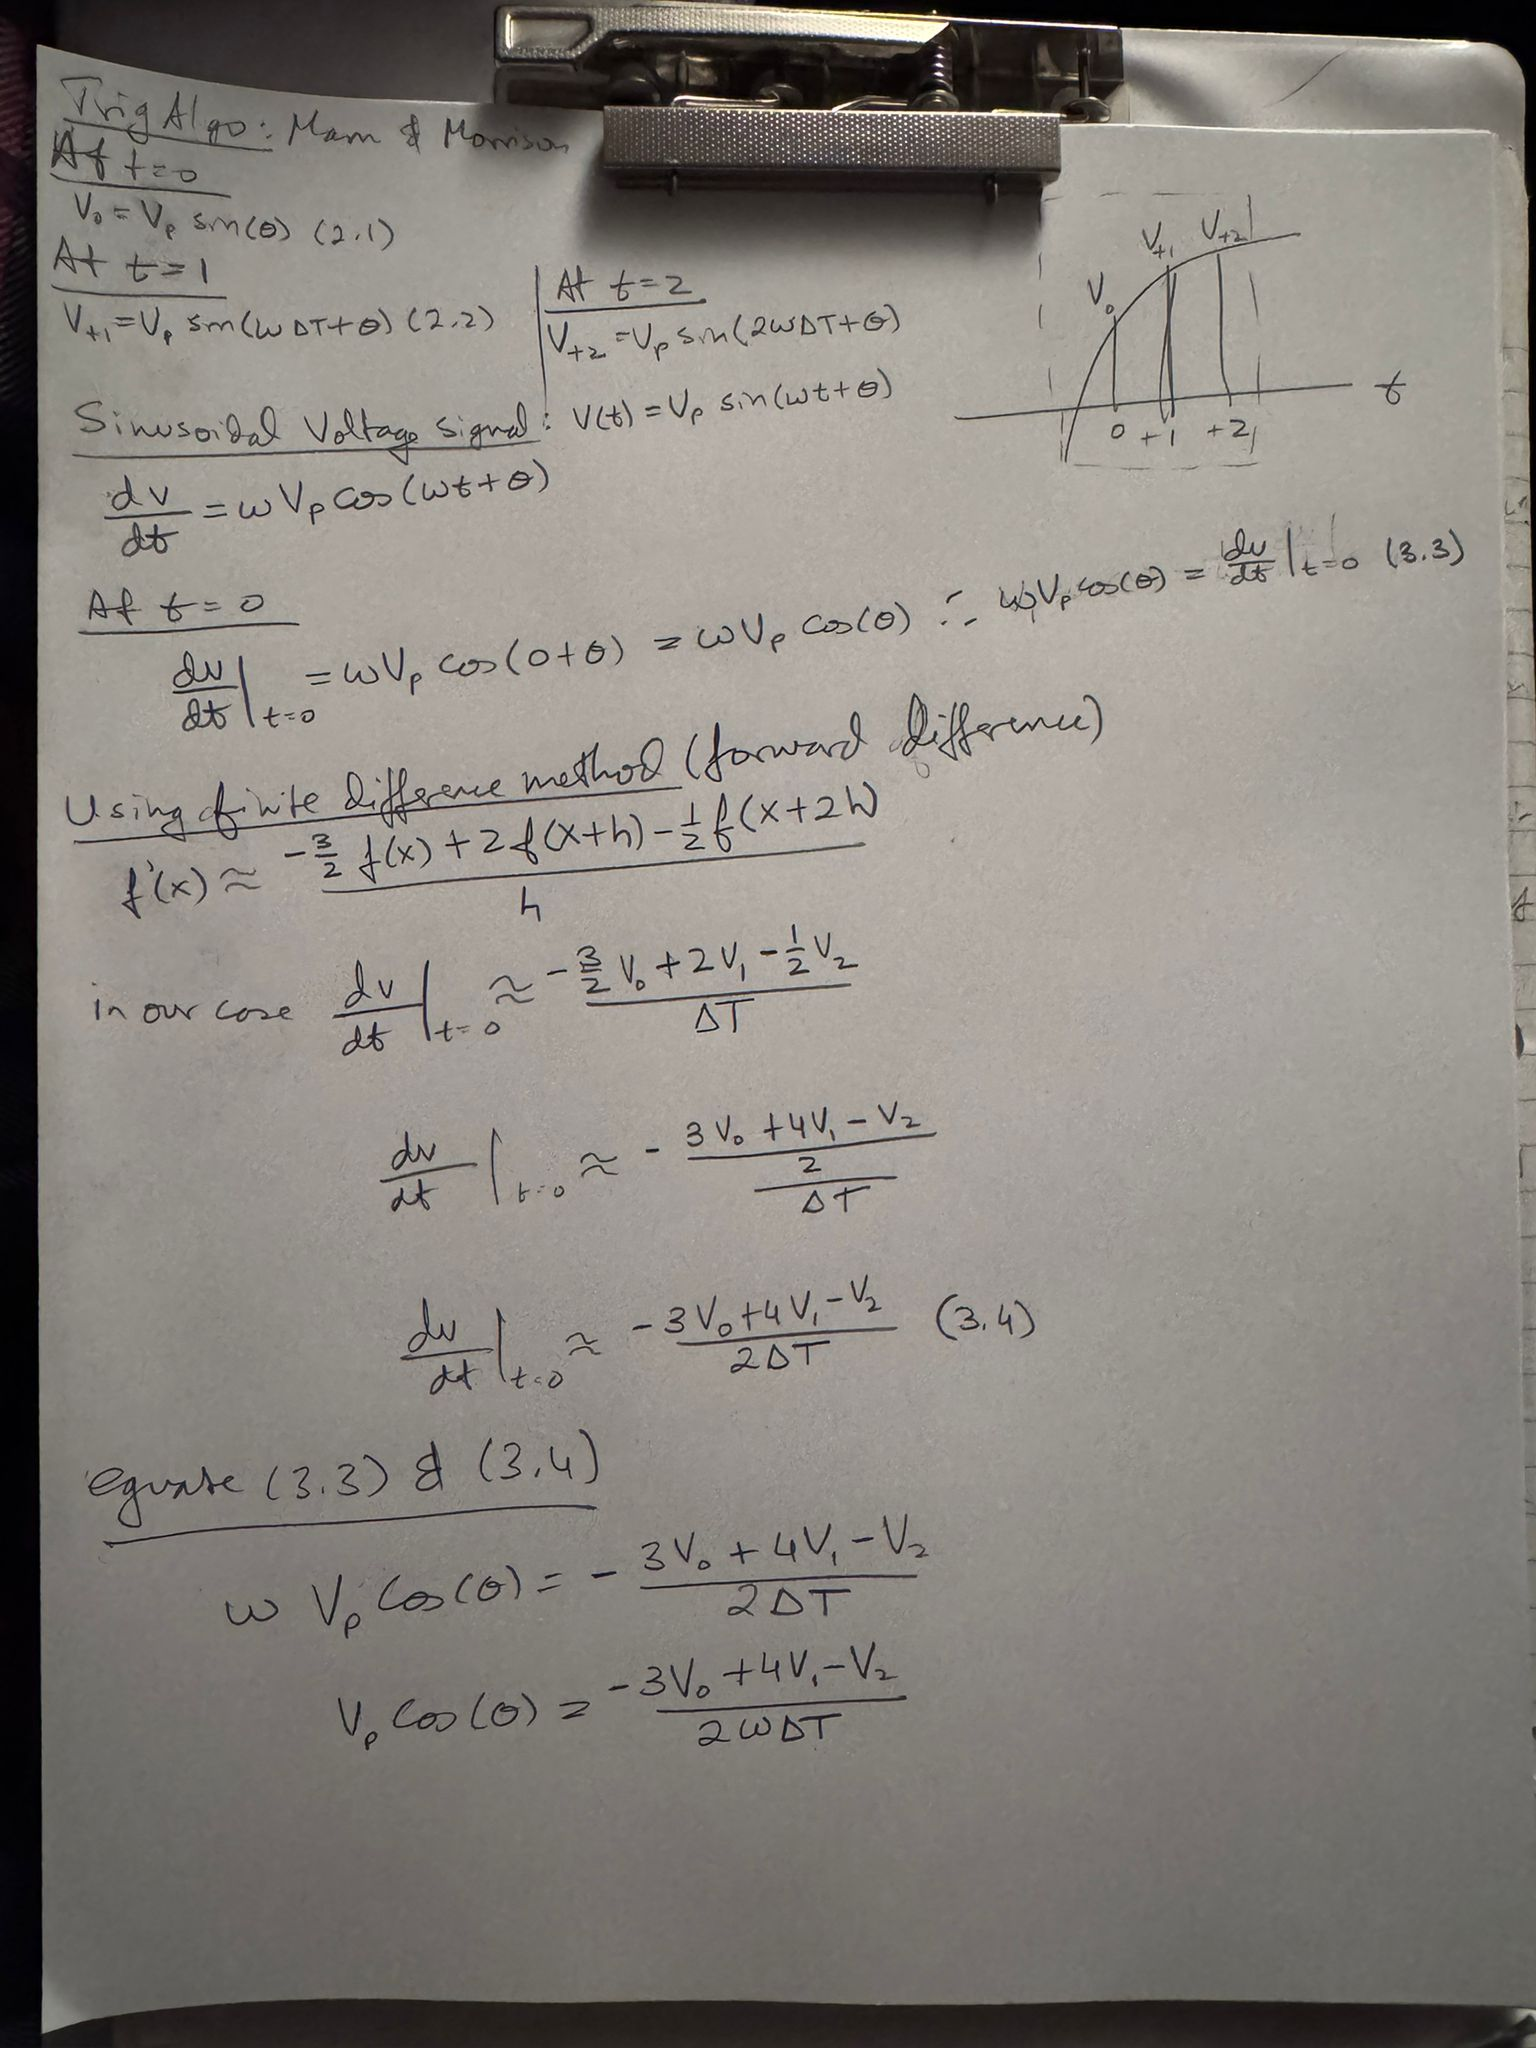 Trig Algo: Mann & Morrison
At t=0
V₀ = Vₚ sin(θ) (2.1)
At t=1
V₊₁ = Vₚ sin(ωΔT+θ) (2.2)
At t=2
V₊₂ = Vₚ sin(2ωΔT+θ)
V₀ V₊₁ V₊₂
0 +1 +2 t
Sinusoidal Voltage signal: V(t) = Vₚ sin(ωt+θ)
dv/dt = ω Vₚ cos(ωt+θ)
At t=0
dv/dt|t=0 = ωVₚ cos(0+θ) = ωVₚ cos(θ) ∴ ωVₚ cos(θ) = dv/dt|t=0 (3.3)
Using finite difference method (forward difference)
f'(x) ≈ (-3/2 f(x) + 2f(x+h) - 1/2 f(x+2h))/h
in our case dv/dt|t=0 ≈ (-3/2 V₀ + 2V₁ - 1/2 V₂)/ΔT
dv/dt|t=0 ≈ - ((3V₀ + 4V₁ - V₂)/2)/ΔT
dv/dt|t=0 ≈ (-3V₀ + 4V₁ - V₂)/2ΔT (3.4)
equate (3.3) & (3.4)
ω Vₚ Cos(θ) = - (3V₀ + 4V₁ - V₂)/2ΔT
Vₚ Cos(θ) = (-3V₀ + 4V₁ - V₂)/2ωΔT